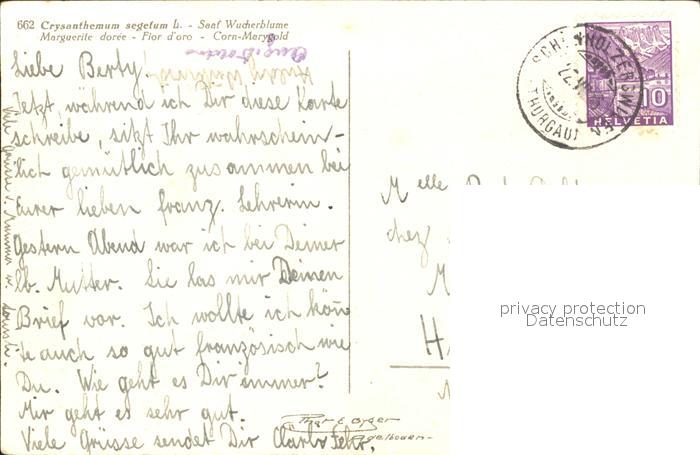 662 Crysanthemum segetum L. - Saat Wucherblume
Marguerite dorée - Fior d'oro - Corn-Marygold
Liebe Berty!
Jetzt, während ich Dir diese Karte
schreibe, sitzt Ihr wahrschein-
lich gemütlich zusammen bei
Eurer lieben franz. Lehrerin.
Gestern Abend war ich bei Deiner
lb. Mutter. Sie las mir Deinen
Brief vor. Ich wollte ich kön
te auch so gut französisch wie
Du. Wie geht es Dir immer?
Mir geht es sehr gut.
Viele Grüsse sendet Dir Fehr.
Viele Grüsse
SCHÖNHOLZERSWILEN
22
THURGAU
10
HELVETIA
Melle
chez
M
H
privacy protection
Datenschutz